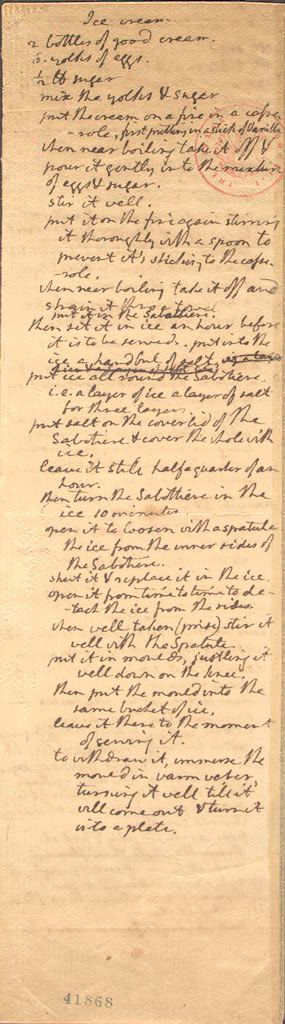 Ice cream.
2. bottles of good cream.
6. yolks of eggs.
1/2 lb sugar
mix the yolks & sugar
put the cream on a fire in a casse-
-role, first putting in a stick of Vanilla.
when near boiling take it off &
pour it gently into the mixture
of eggs & sugar.
stir it well.
put it on the fire again stirring
it thoroughly with a spoon to
prevent it's sticking to the casse-
-role.
when near boiling take it off and
strain it thro' a towel.
put it in the Sabottiere.
then set it in ice an hour before
it is to be served. put into the
ice a handful of salt.
put ice all round the Sabottiere
i.e. a layer of ice a layer of salt
for three layers.
put salt on the coverlid of the
Sabotiere & cover the whole with
ice.
leave it still half a quarter of an
hour.
then turn the Sabottiere in the
ice 10 minutes.
open it to loosen with a spatula
the ice from the inner sides of
the Sabotiere.
shut it & replace it in the ice.
open it from time to time to de-
-tach the ice from the sides.
when well taken (prise) stir it
well with the Spatula.
put it in moulds, justling it
well down on the knee.
then put the mould into the
same bucket of ice.
leave it there to the moment
of serving it.
to withdraw it, immerse the
mould in warm water,
turning it well till it
will come out & turn it
into a plate.
41868